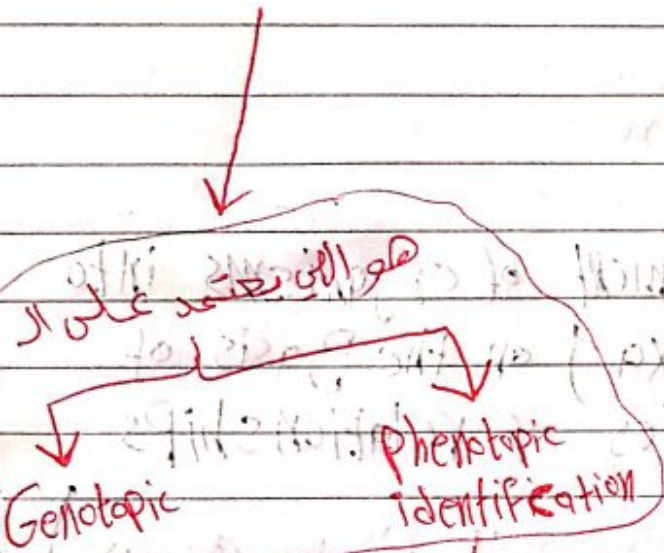 هو اللي يعتمد على ال
Genotopic
phenotopic
identification